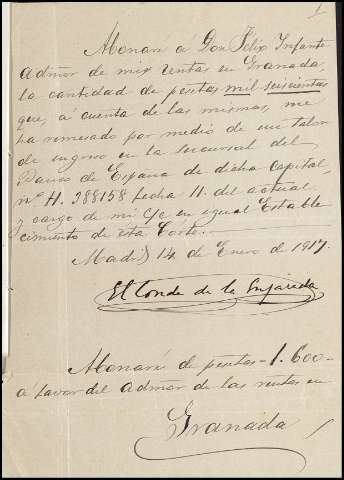 1
Abonaré á Don Félix Infante
Admor de mis rentas en Granada
la cantidad de pesetas mil seiscientas
que, a cuenta de las mismas, me
ha remesado por medio de un talon
de ingreso en la sucursal del
Banco de España de dicha Capital,
nº H. 388158 fecha 11. del actual
y cargo de mi c/c en igual Estable
cimiento de esta Córte.
Madrid 14 de Enero de 1917.
El Conde de la Enjarada
Abonaré de pesetas - 1.600 -
a favor del Admor de las rentas en
Granada